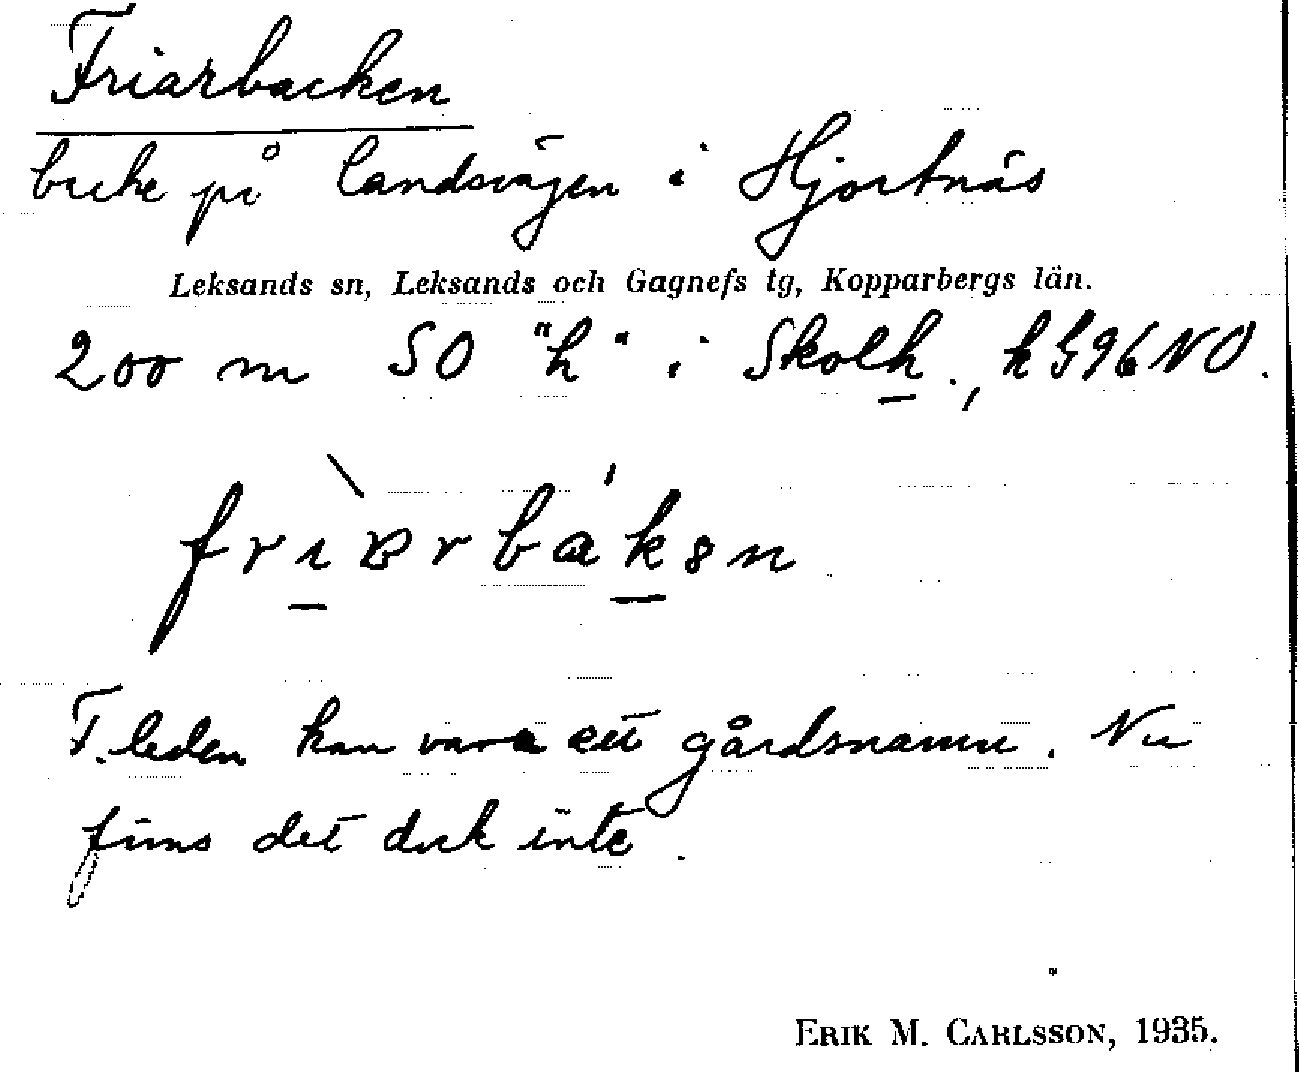 Friarbacken
backe på landsvägen i Hjortnäs
Leksands sn, Leksands och Gagnefs tg, Kopparbergs län.
200 m SO "h" i Skolh., k 596 NO.
F.leden kan vara ett gårdsnamn. Nu
finns det dock inte.
ERIK M. CARLSSON, 1935.